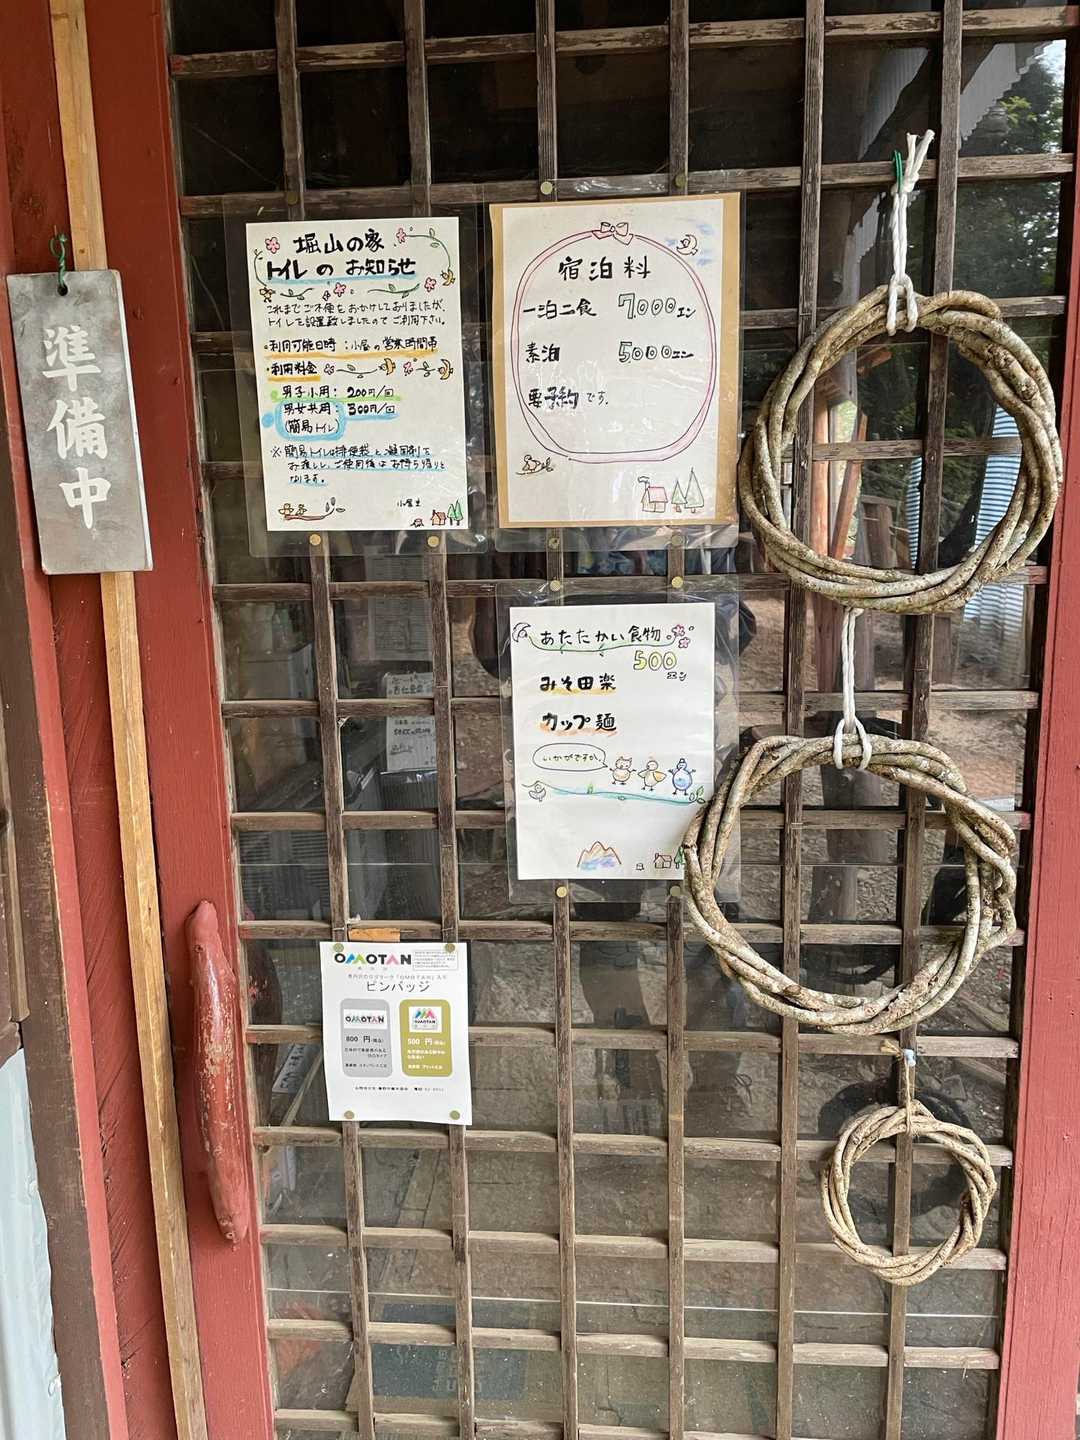 準備中
堀山の家
トイレの お知らせ
これまでご不便をおかけしておりましたが、
トイレを設置致しましたのでご利用下さい。
・利用可能日時：小屋の営業時間帯
・利用料金
男子小用：200円/回
男女共用：300円/回
(簡易トイレ)
※簡易トイレは排便袋と凝固剤を
お渡しし、ご使用後はお持ち帰りと
なります。
小屋主
宿泊料
一泊二食 7,000エン
素泊 5000エン
要予約です。
あたたかい食物
500
エン
みそ田楽
カップ麺
いかがですか。
OMOTAN
表丹沢
表丹沢のロゴマーク「OMOTAN」入り
ピンバッジ
OMOTAN
800 円(税込)
OMOTAN
500 円(税込)